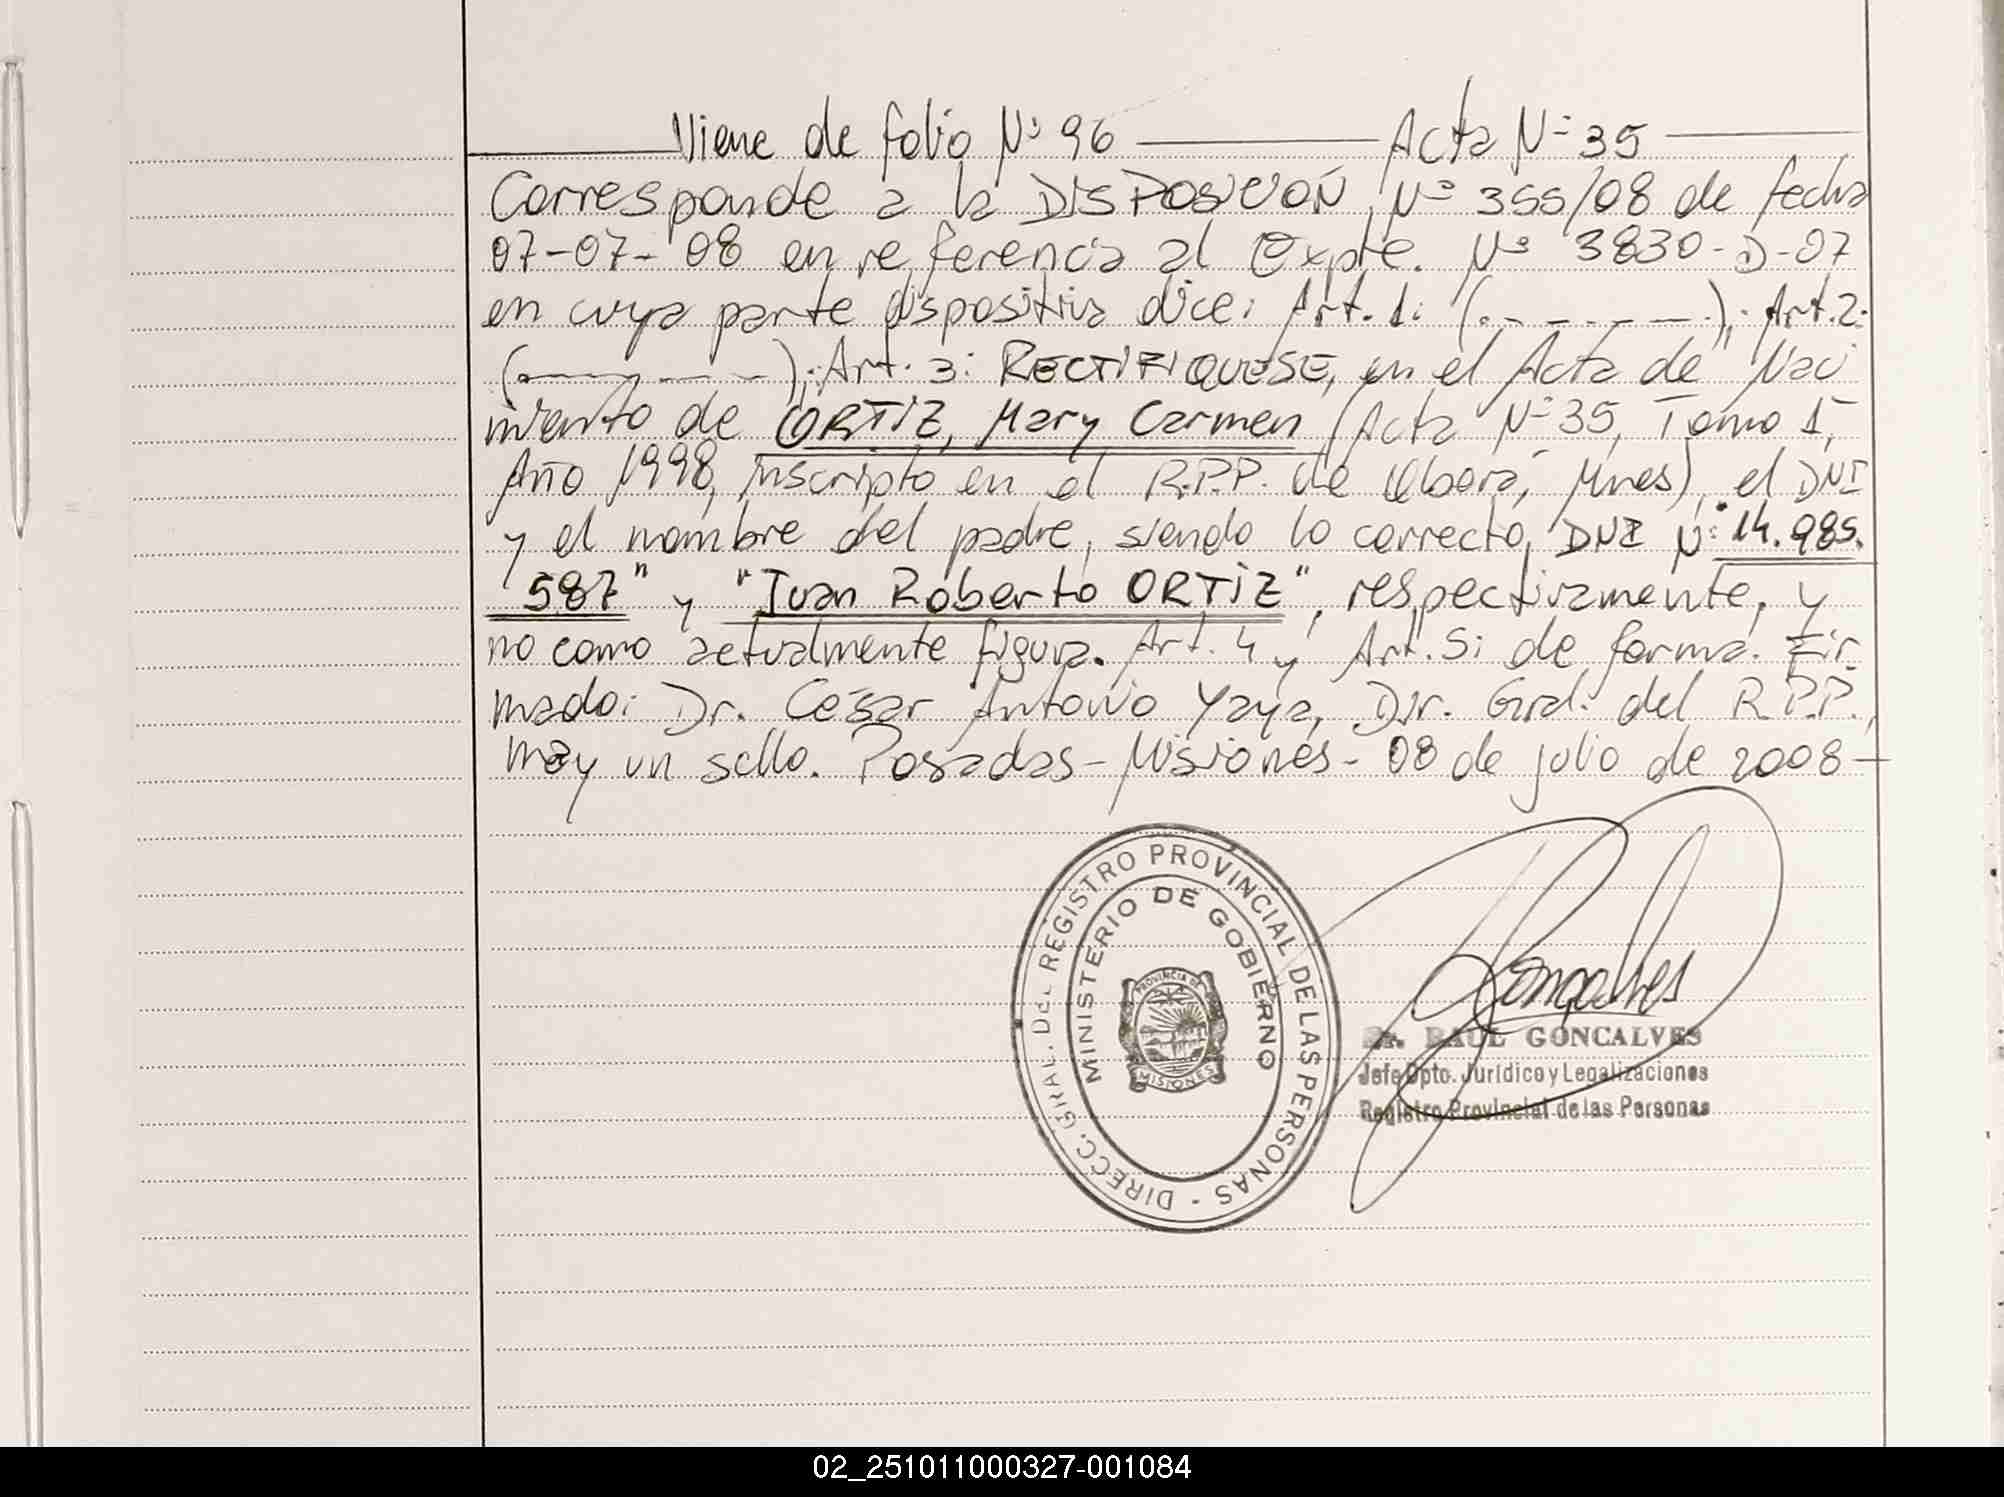 Viene de folio Nº 96 ——— Acta Nº 35 ———
Corresponde a la DISPOSICIÓN Nº 355/08 de fecha
07-07-08 en referencia al Expte. Nº 3830-D-07
en cuya parte dispositiva dice: Art. 1: (.- - - - - -.); Art. 2:
(.- - - - - -); Art. 3: RECTIFIQUESE, en el Acta de Naci
miento de ORTIZ, Mary Carmen (Acta Nº 35, Tomo 1,
Año 1998, inscripto en el R.P.P. de Oberá, Mnes), el DNI
y el nombre del padre, siendo lo correcto, DNI Nº "14.985.
587" y "Juan Roberto ORTIZ", respectivamente, y
no como actualmente figura. Art. 4 y Art. 5: de forma. Fir
mado: Dr. César Antonio Yaya, Dir. Gral. del R.P.P.,
hay un sello. Posadas - Misiones - 08 de julio de 2008 -
DIRECC. GRAL. DEL REGISTRO PROVINCIAL DE LAS PERSONAS -
MINISTERIO DE GOBIERNO
PROVINCIA DE
MISIONES
Goncalves
Dr. RAUL GONCALVES
Jefe Dpto. Jurídico y Legalizaciones
Registro Provincial de las Personas
02_251011000327-001084